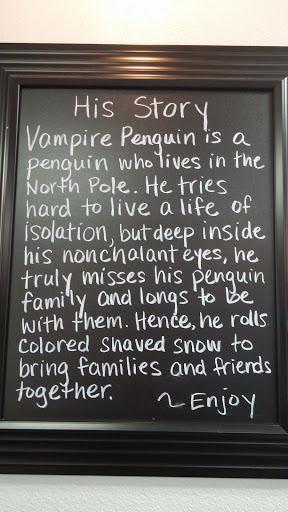 His Story
Vampire Penguin is a
penguin who lives in the
North Pole. He tries
hard to live a life of
isolation, but deep inside
his nonchalant eyes, he
truly misses his penguin
family and longs to be
with them. Hence, he rolls
colored shaved snow to
bring families and friends
together.
~ Enjoy